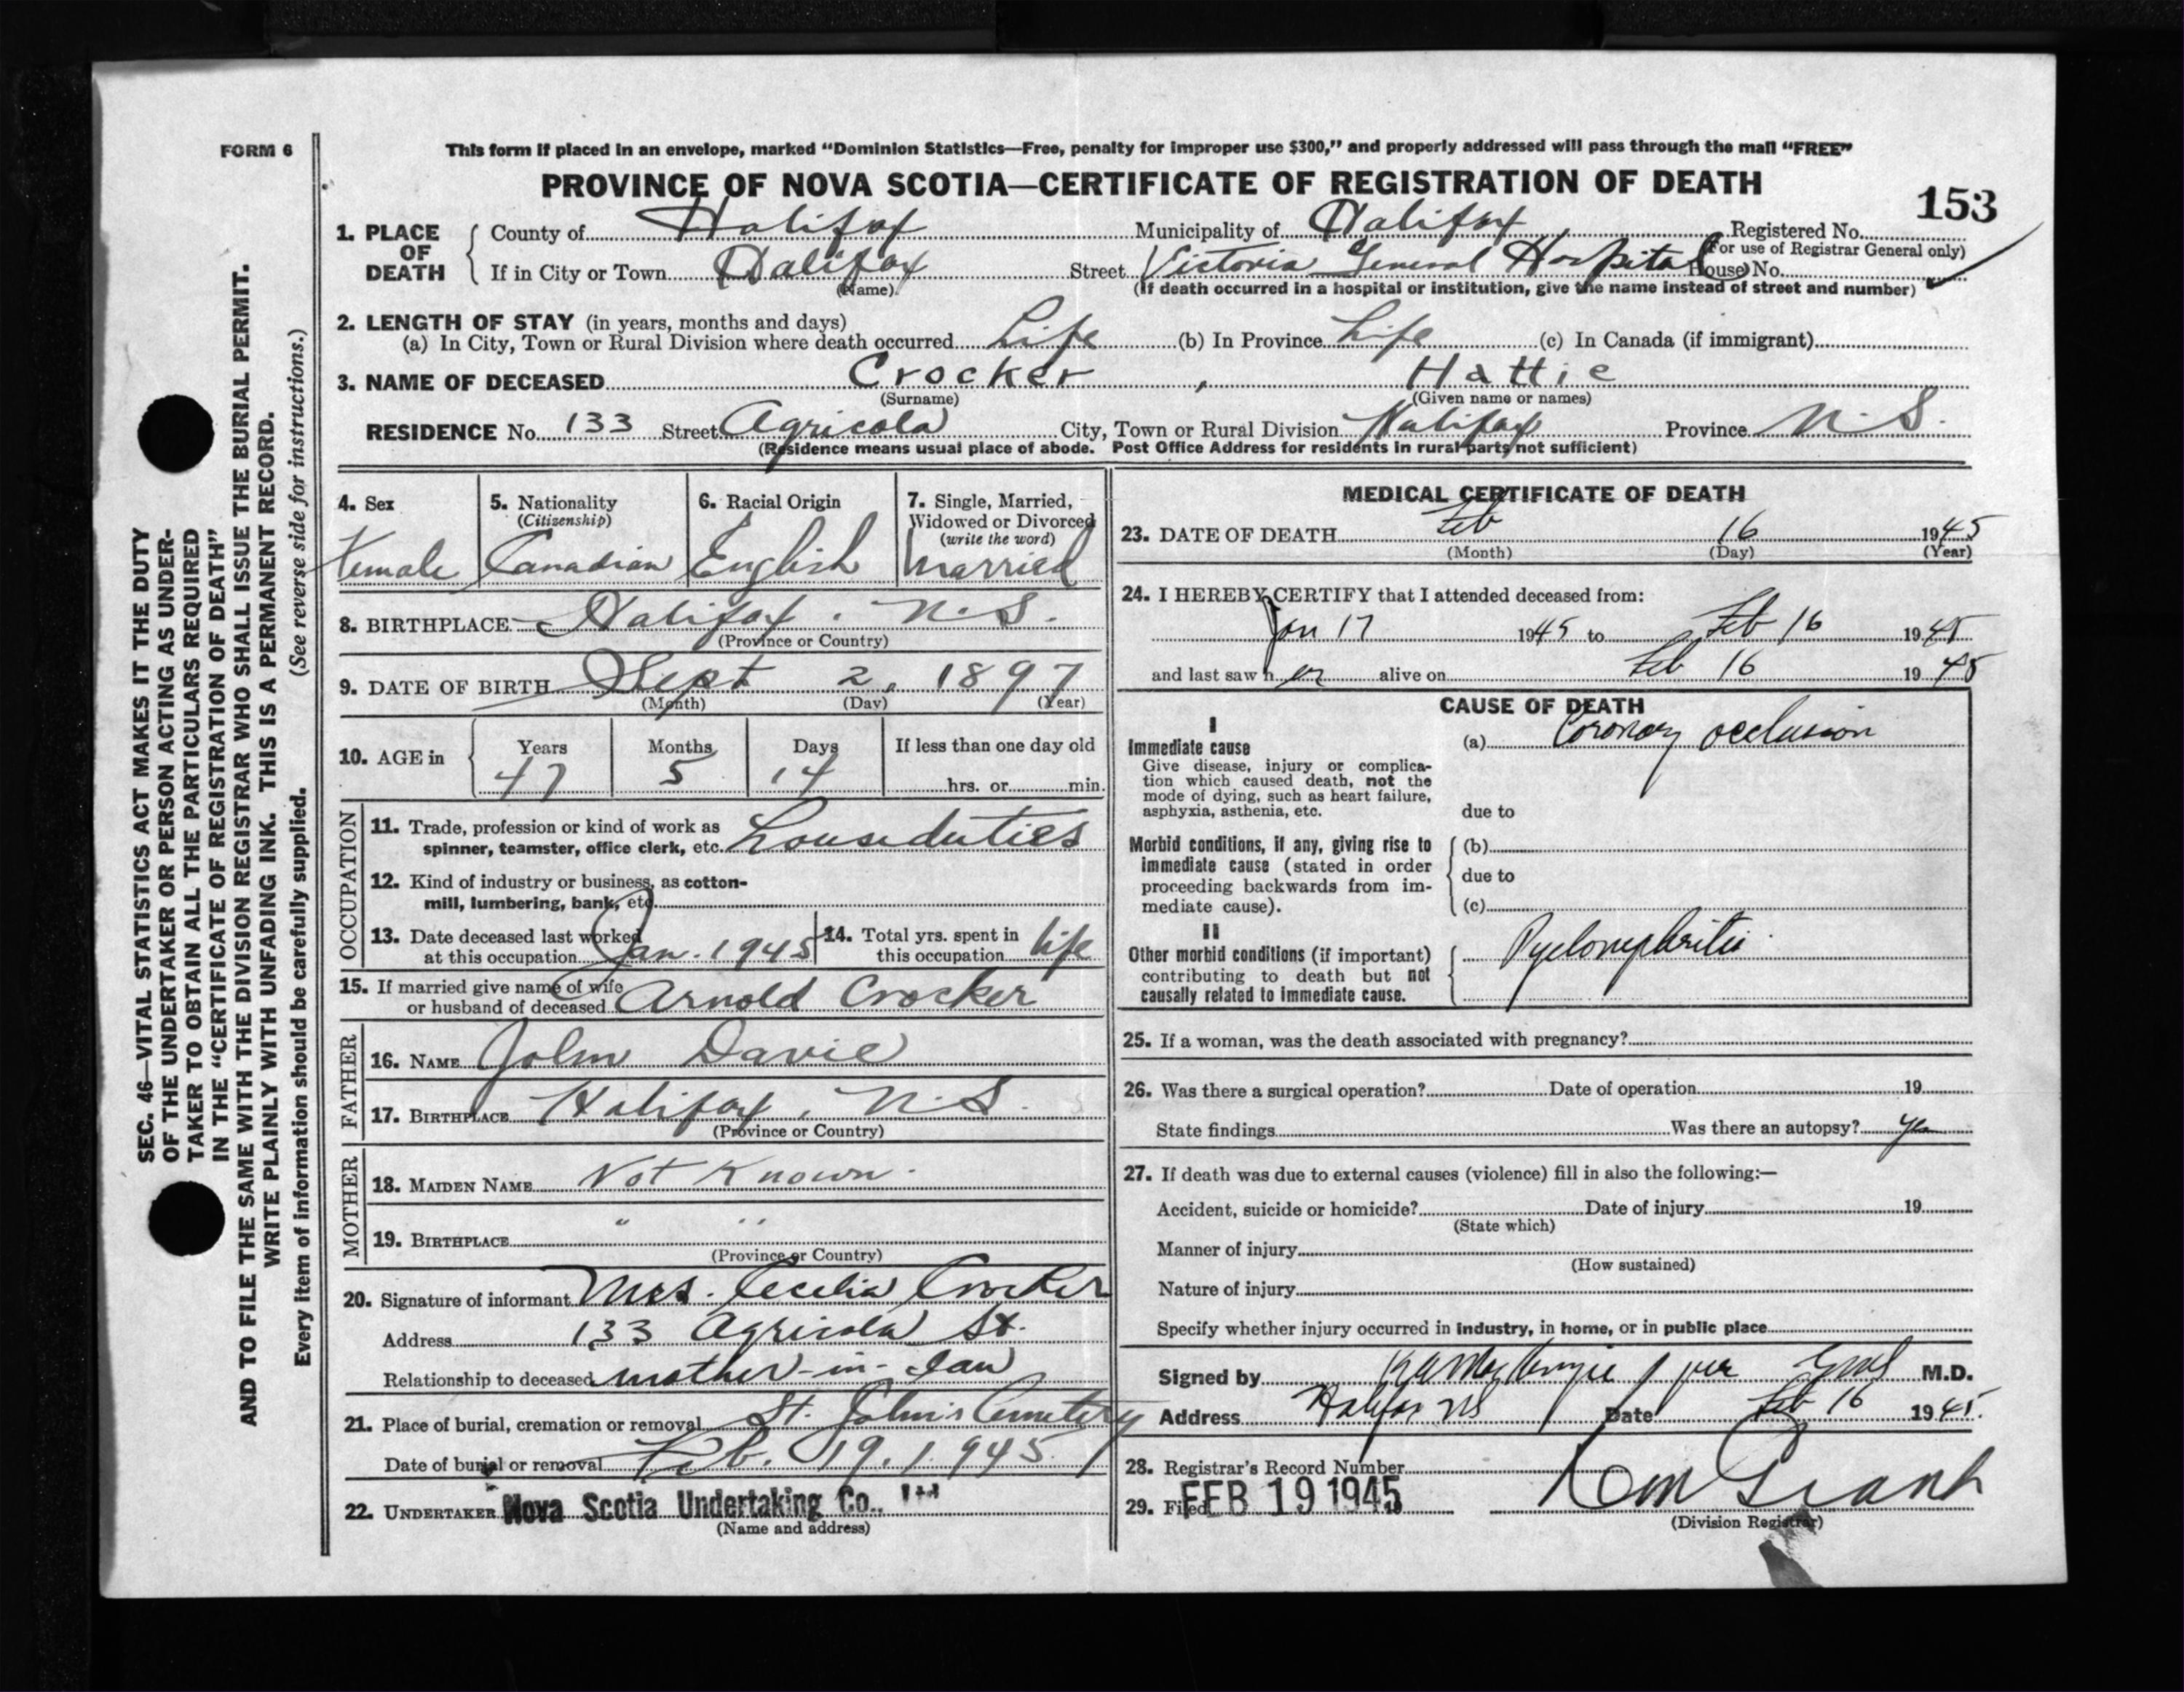 FORM 6
This form if placed in an envelope, marked “Dominion Statistics—Free, penalty for improper use $300,” and properly addressed will pass through the mail “FREE”
PROVINCE OF NOVA SCOTIA—CERTIFICATE OF REGISTRATION OF DEATH
153
1. PLACE OF DEATH
County of Halifax Municipality of Halifax Registered No.
(For use of Registrar General only)
If in City or Town Halifax Street Victoria General Hospital House No.
(Name) (If death occurred in a hospital or institution, give the name instead of street and number)
2. LENGTH OF STAY (in years, months and days)
(a) In City, Town or Rural Division where death occurred Life (b) In Province Life (c) In Canada (if immigrant)
3. NAME OF DECEASED Crocker , Hattie
(Surname) (Given name or names)
RESIDENCE No. 133 Street Agricola City, Town or Rural Division Halifax Province N.S.
(Residence means usual place of abode. Post Office Address for residents in rural parts not sufficient)
4. Sex
Female
5. Nationality
(Citizenship)
Canadian
6. Racial Origin
English
7. Single, Married,
Widowed or Divorced
(write the word)
Married
8. BIRTHPLACE Halifax. N.S.
(Province or Country)
9. DATE OF BIRTH Sept 2, 1897
(Month) (Day) (Year)
10. AGE in
Years Months Days If less than one day old
47 5 14 hrs. or min.
OCCUPATION
11. Trade, profession or kind of work as
spinner, teamster, office clerk, etc. Houseduties
12. Kind of industry or business, as cotton-
mill, lumbering, bank, etc.
13. Date deceased last worked
at this occupation Jan. 1945
14. Total yrs. spent in
this occupation life
15. If married give name of wife
or husband of deceased Arnold Crocker
FATHER
16. NAME John Davie
17. BIRTHPLACE Halifax, N.S.
(Province or Country)
MOTHER
18. MAIDEN NAME Not Known.
19. BIRTHPLACE " "
(Province or Country)
20. Signature of informant Mrs. Cecelia Crocker
Address 133 Agricola St.
Relationship to deceased mother-in-law
21. Place of burial, cremation or removal St. John's Cemetery
Date of burial or removal Feb. 19. 1945.
22. UNDERTAKER Nova Scotia Undertaking Co., Ltd
(Name and address)
MEDICAL CERTIFICATE OF DEATH
23. DATE OF DEATH Feb 16 1945
(Month) (Day) (Year)
24. I HEREBY CERTIFY that I attended deceased from:
Jan 17 1945 to Feb 16 1945
and last saw h er alive on Feb 16 1945
CAUSE OF DEATH
I
Immediate cause
Give disease, injury or complica-
tion which caused death, not the
mode of dying, such as heart failure,
asphyxia, asthenia, etc.
(a) Coronary occlusion
due to
Morbid conditions, if any, giving rise to
immediate cause (stated in order
proceeding backwards from im-
mediate cause).
(b)
due to
(c)
II
Other morbid conditions (if important)
contributing to death but not
causally related to immediate cause.
Pyelonephritis
25. If a woman, was the death associated with pregnancy?
26. Was there a surgical operation? Date of operation 19
State findings Was there an autopsy? yes
27. If death was due to external causes (violence) fill in also the following:—
Accident, suicide or homicide? Date of injury 19
(State which)
Manner of injury
(How sustained)
Nature of injury
Specify whether injury occurred in industry, in home, or in public place
Signed by per M.D.
Address Halifax NS Date Feb 16 1945.
28. Registrar's Record Number
29. Filed FEB 19 1945
Grant
(Division Registrar)
SEC. 46—VITAL STATISTICS ACT MAKES IT THE DUTY
OF THE UNDERTAKER OR PERSON ACTING AS UNDER-
TAKER TO OBTAIN ALL THE PARTICULARS REQUIRED
IN THE “CERTIFICATE OF REGISTRATION OF DEATH”
AND TO FILE THE SAME WITH THE DIVISION REGISTRAR WHO SHALL ISSUE THE BURIAL PERMIT.
WRITE PLAINLY WITH UNFADING INK. THIS IS A PERMANENT RECORD.
Every item of information should be carefully supplied. (See reverse side for instructions.)